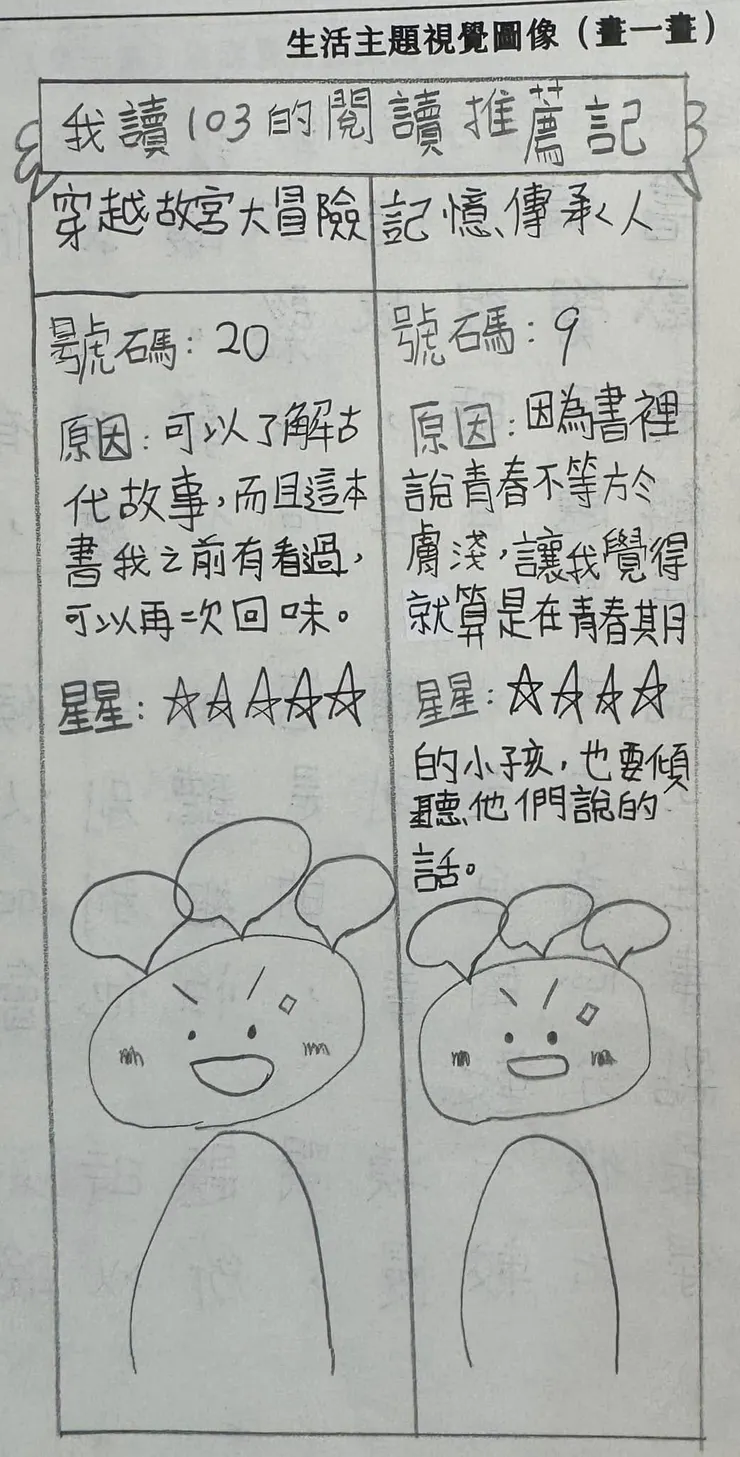 生活主題視覺圖像（畫一畫）
我讀103的閱讀推薦記
穿越故宮大冒險
號碼：20
原因：可以了解古
代故事，而且這本
書我之前有看過，
可以再次回味。
星星：☆☆☆☆☆
記憶傳承人
號碼：9
原因：因為書裡
說青春不等於
膚淺，讓我覺得
就算是在青春期
星星：☆☆☆☆
的小孩，也要傾
聽他們說的
話。